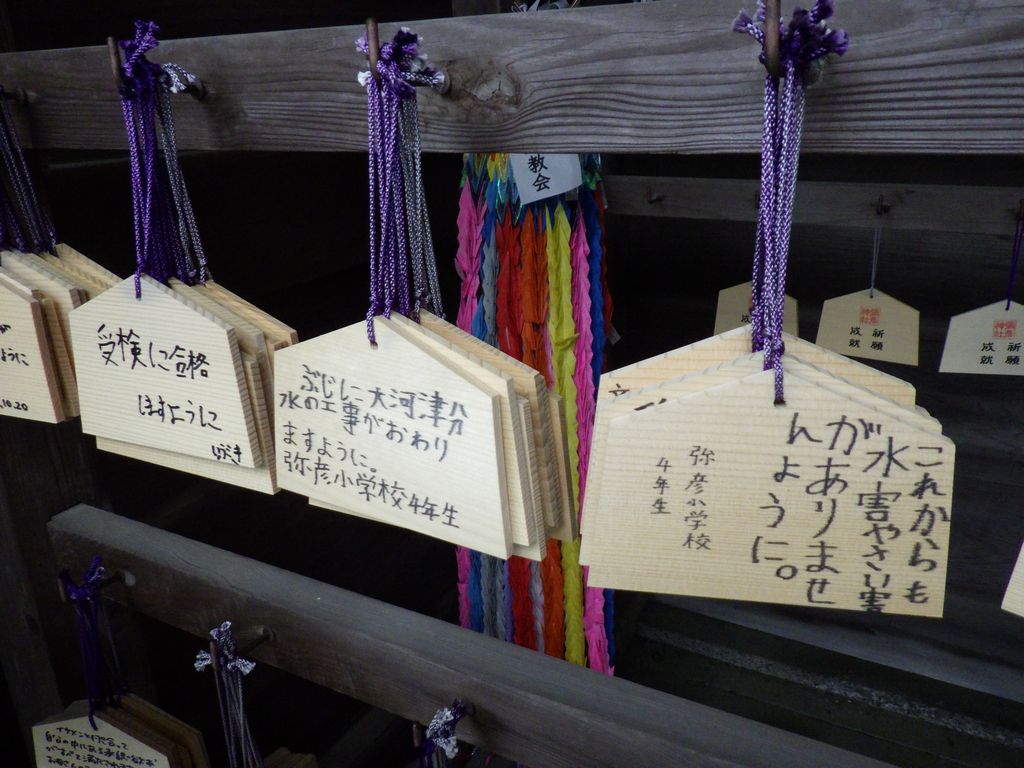 教会
ように
10.20
受検に合格
ますように
ぶじに大河津分
水の工事がおわり
ますように。
弥彦小学校4年生
これからも
水害やさい害
がありませ
んように。
弥彦小学校
4年生
祈願
成就
祈願
成就